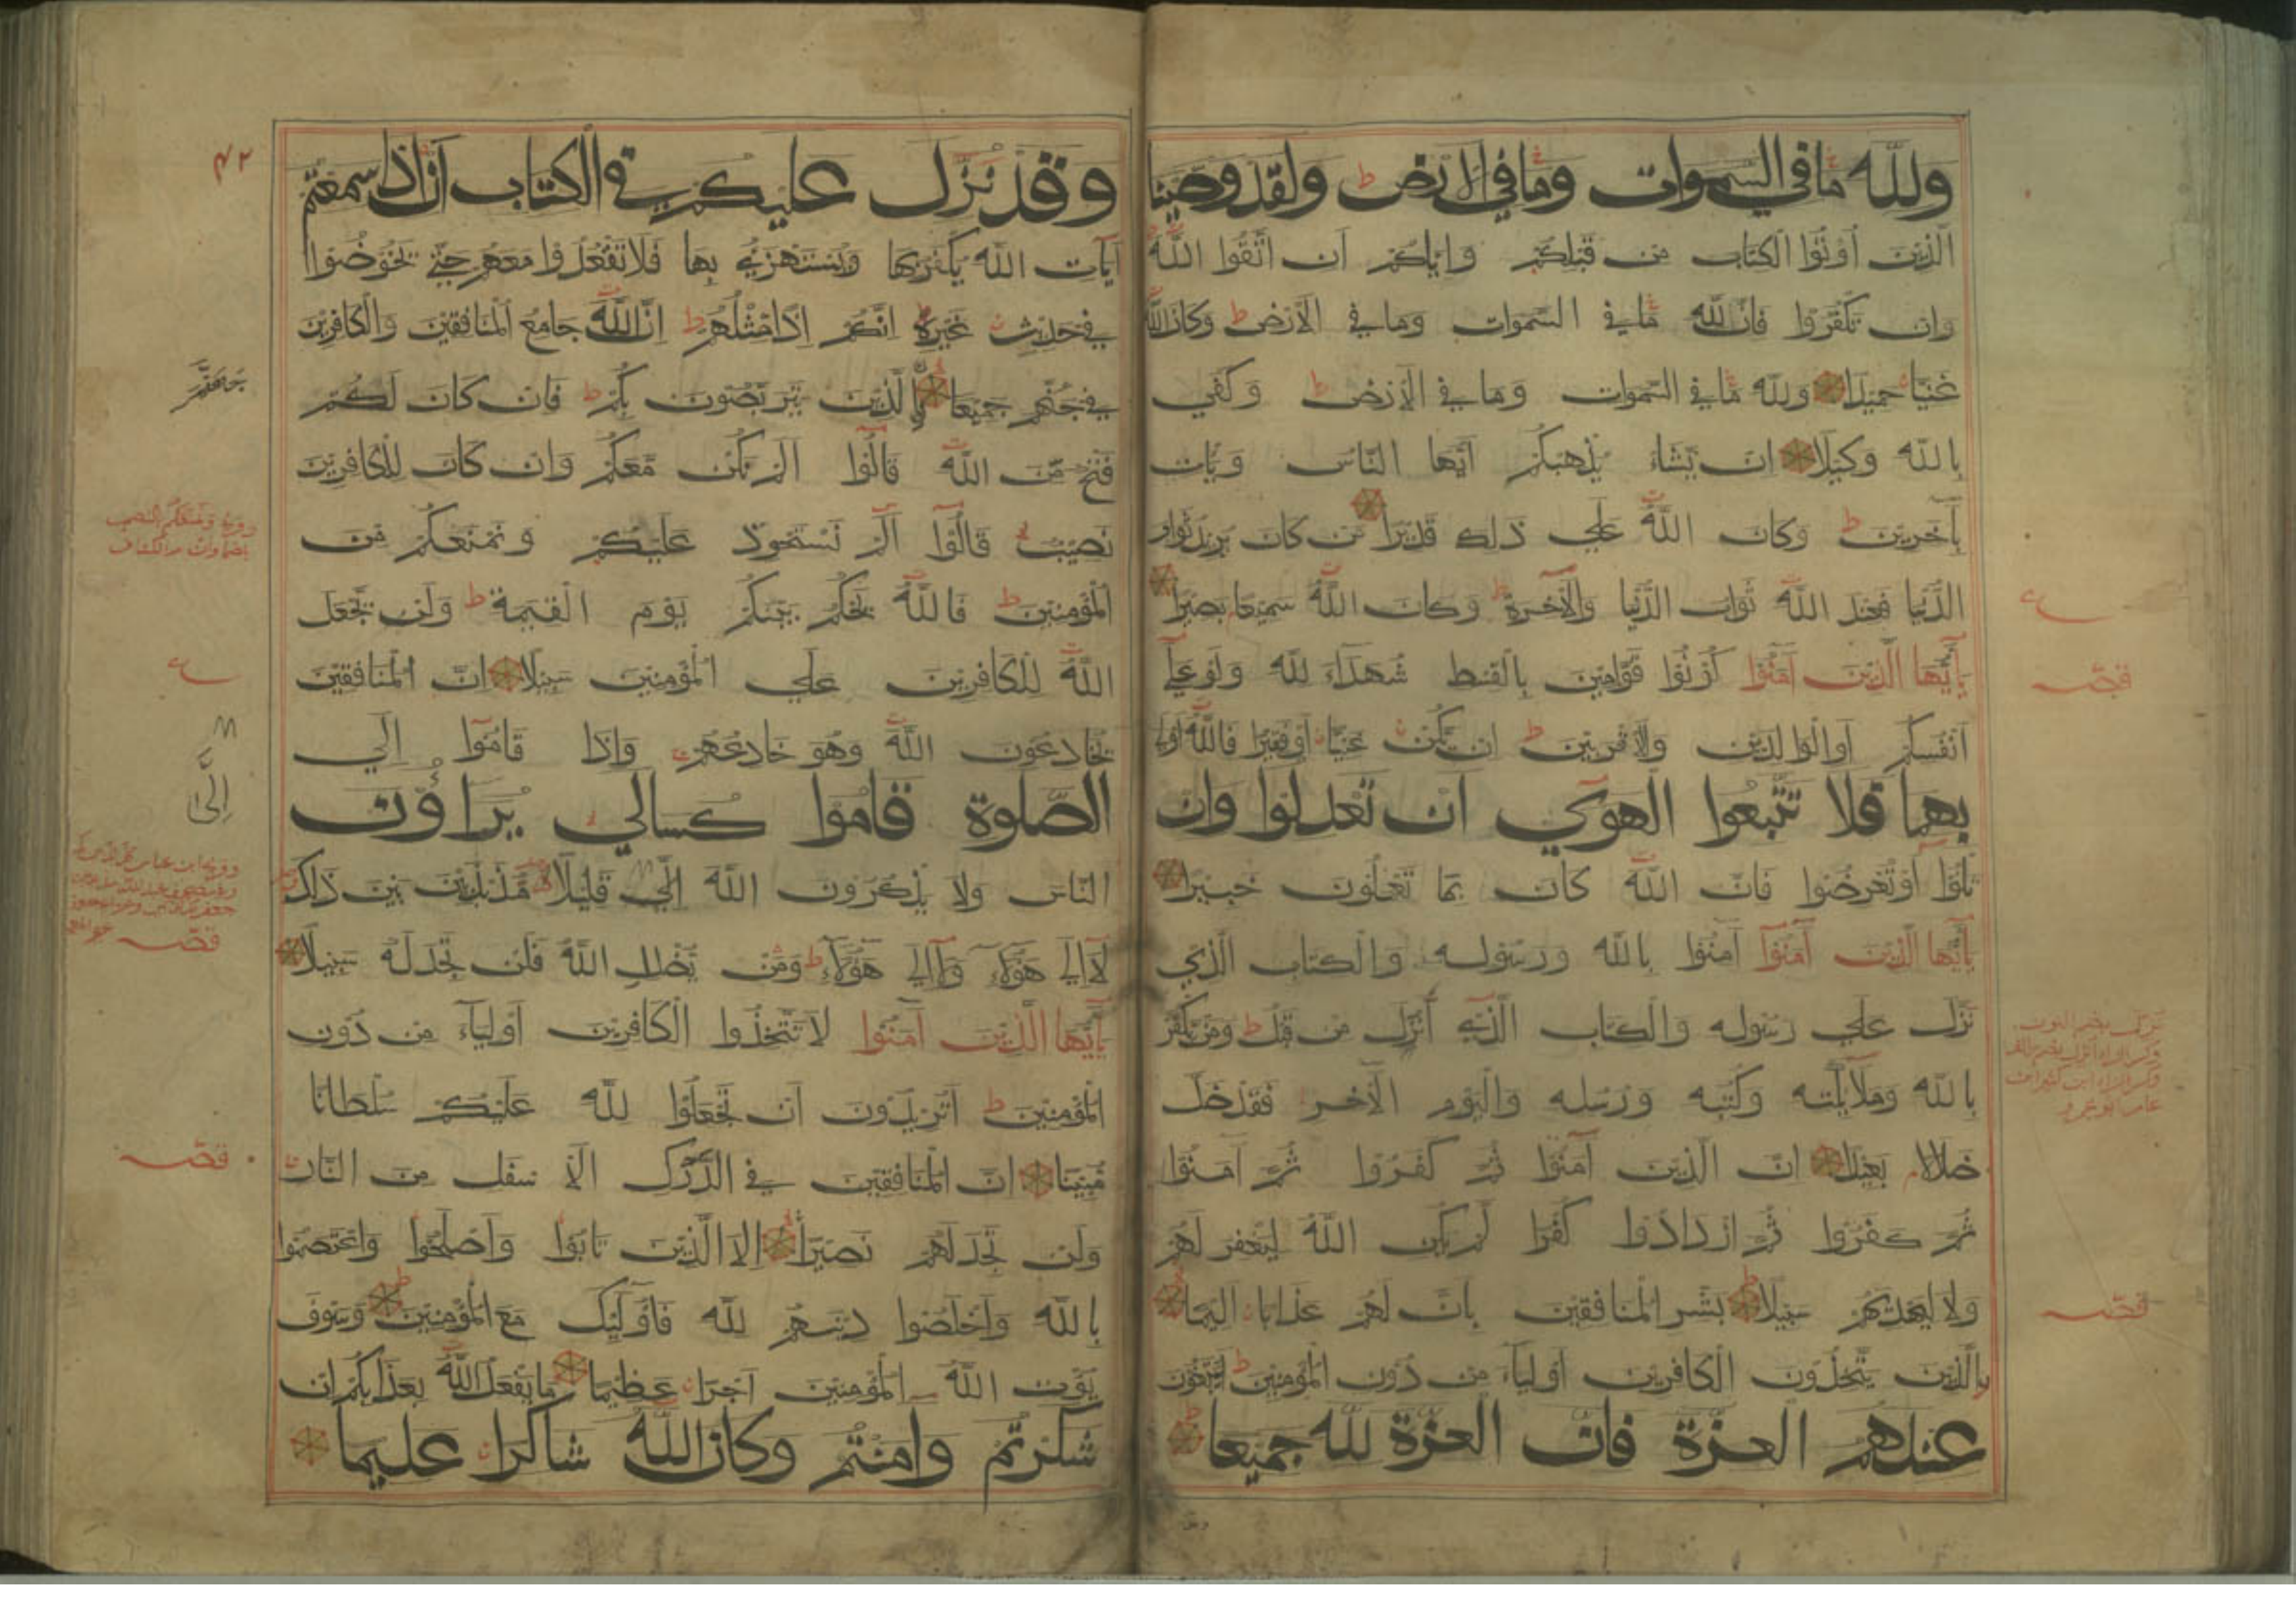 ولله ما في السموات وما في الارض ط ولقد وصينا
الذين اوتوا الكتاب من قبلكم واياكم ان اتقوا الله
وان تكفروا فان لله ما في السموات وما في الارض ط وكان الله
غنيا حميدا ولله ما في السموات وما في الارض ط وكفي
بالله وكيلا ان يشاء يذهبكم ايها الناس ويات
بآخرين ط وكان الله علي ذلك قديرا من كان يريد ثواب
الدنيا فعند الله ثواب الدنيا والآخرة ط وكان الله سميعا بصيرا
يايها الذين آمنوا كونوا قوامين بالقسط شهدآء لله ولو علي
انفسكم او الوالدين والاقربين ط ان يكن غنيا او فقيرا فالله اولي
بهما فلا تتبعوا الهوي ان تعدلوا وان
تلوا او تعرضوا فان الله كان بما تعملون خبيرا
يايها الذين آمنوا آمنوا بالله ورسوله والكتاب الذي
نزل علي رسوله والكتاب الذي أنزل من قبل ط ومن يكفر
بالله وملايكته وكتبه ورسله واليوم الآخر فقد ضل
ضلالا بعيدا ان الذين آمنوا ثم كفروا ثم آمنوا
ثم كفروا ثم ازدادوا كفرا لم يكن الله ليغفر لهم
ولا ليهديهم سبيلا بشر المنافقين بان لهم عذابا اليما
الذين يتخذون الكافرين اوليآء من دون المؤمنين ط ايبتغون
عندهم العزة فان العزة لله جميعا
قصه
قصه
وقد نزل عليكم في الكتاب ان اذا سمعتم
آيات الله يكفر بها ويستهزئ بها فلا تقعدوا معهم حتي يخوضوا
في حديث غيره انكم اذا مثلهم ط ان الله جامع المنافقين والكافرين
في جهنم جميعا الذين يتربصون بكم ط فان كان لكم
فتح من الله قالوا الم نكن معكم وان كان للكافرين
نصيب قالوا الم نستحوذ عليكم ونمنعكم من
المؤمنين ط فالله يحكم بينكم يوم القيمة ط ولن يجعل
الله للكافرين علي المؤمنين سبيلا ان المنافقين
يخادعون الله وهو خادعهم واذا قاموا الي
الصلوة قاموا كسالي يراؤن
الناس ولا يذكرون الله الي قليلا مذبذبين بين ذلك
لآ الي هؤلاء ولآ الي هؤلآء ط ومن يضلل الله فلن تجد له سبيلا
يايها الذين آمنوا لا تتخذوا الكافرين اوليآء من دون
المؤمنين ط اتريدون ان تجعلوا لله عليكم سلطانا
مبينا ان المنافقين في الدرك الاسفل من النار
ولن تجد لهم نصيرا الا الذين تابوا واصلحوا واعتصموا
بالله واخلصوا دينهم لله فاوليك مع المؤمنين وسوف
يؤت الله المؤمنين اجرا عظيما ما يفعل الله بعذابكم ان
شكرتم وامنتم وكان الله شاكرا عليما
٤٢
إلى
قصه
قصه